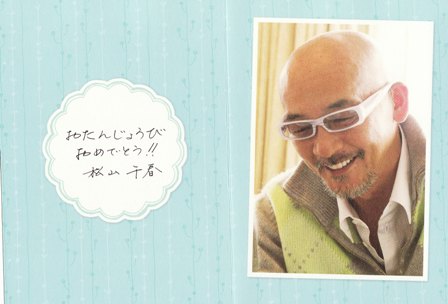 おたんじょうび
おめでとう!!
松山 千春